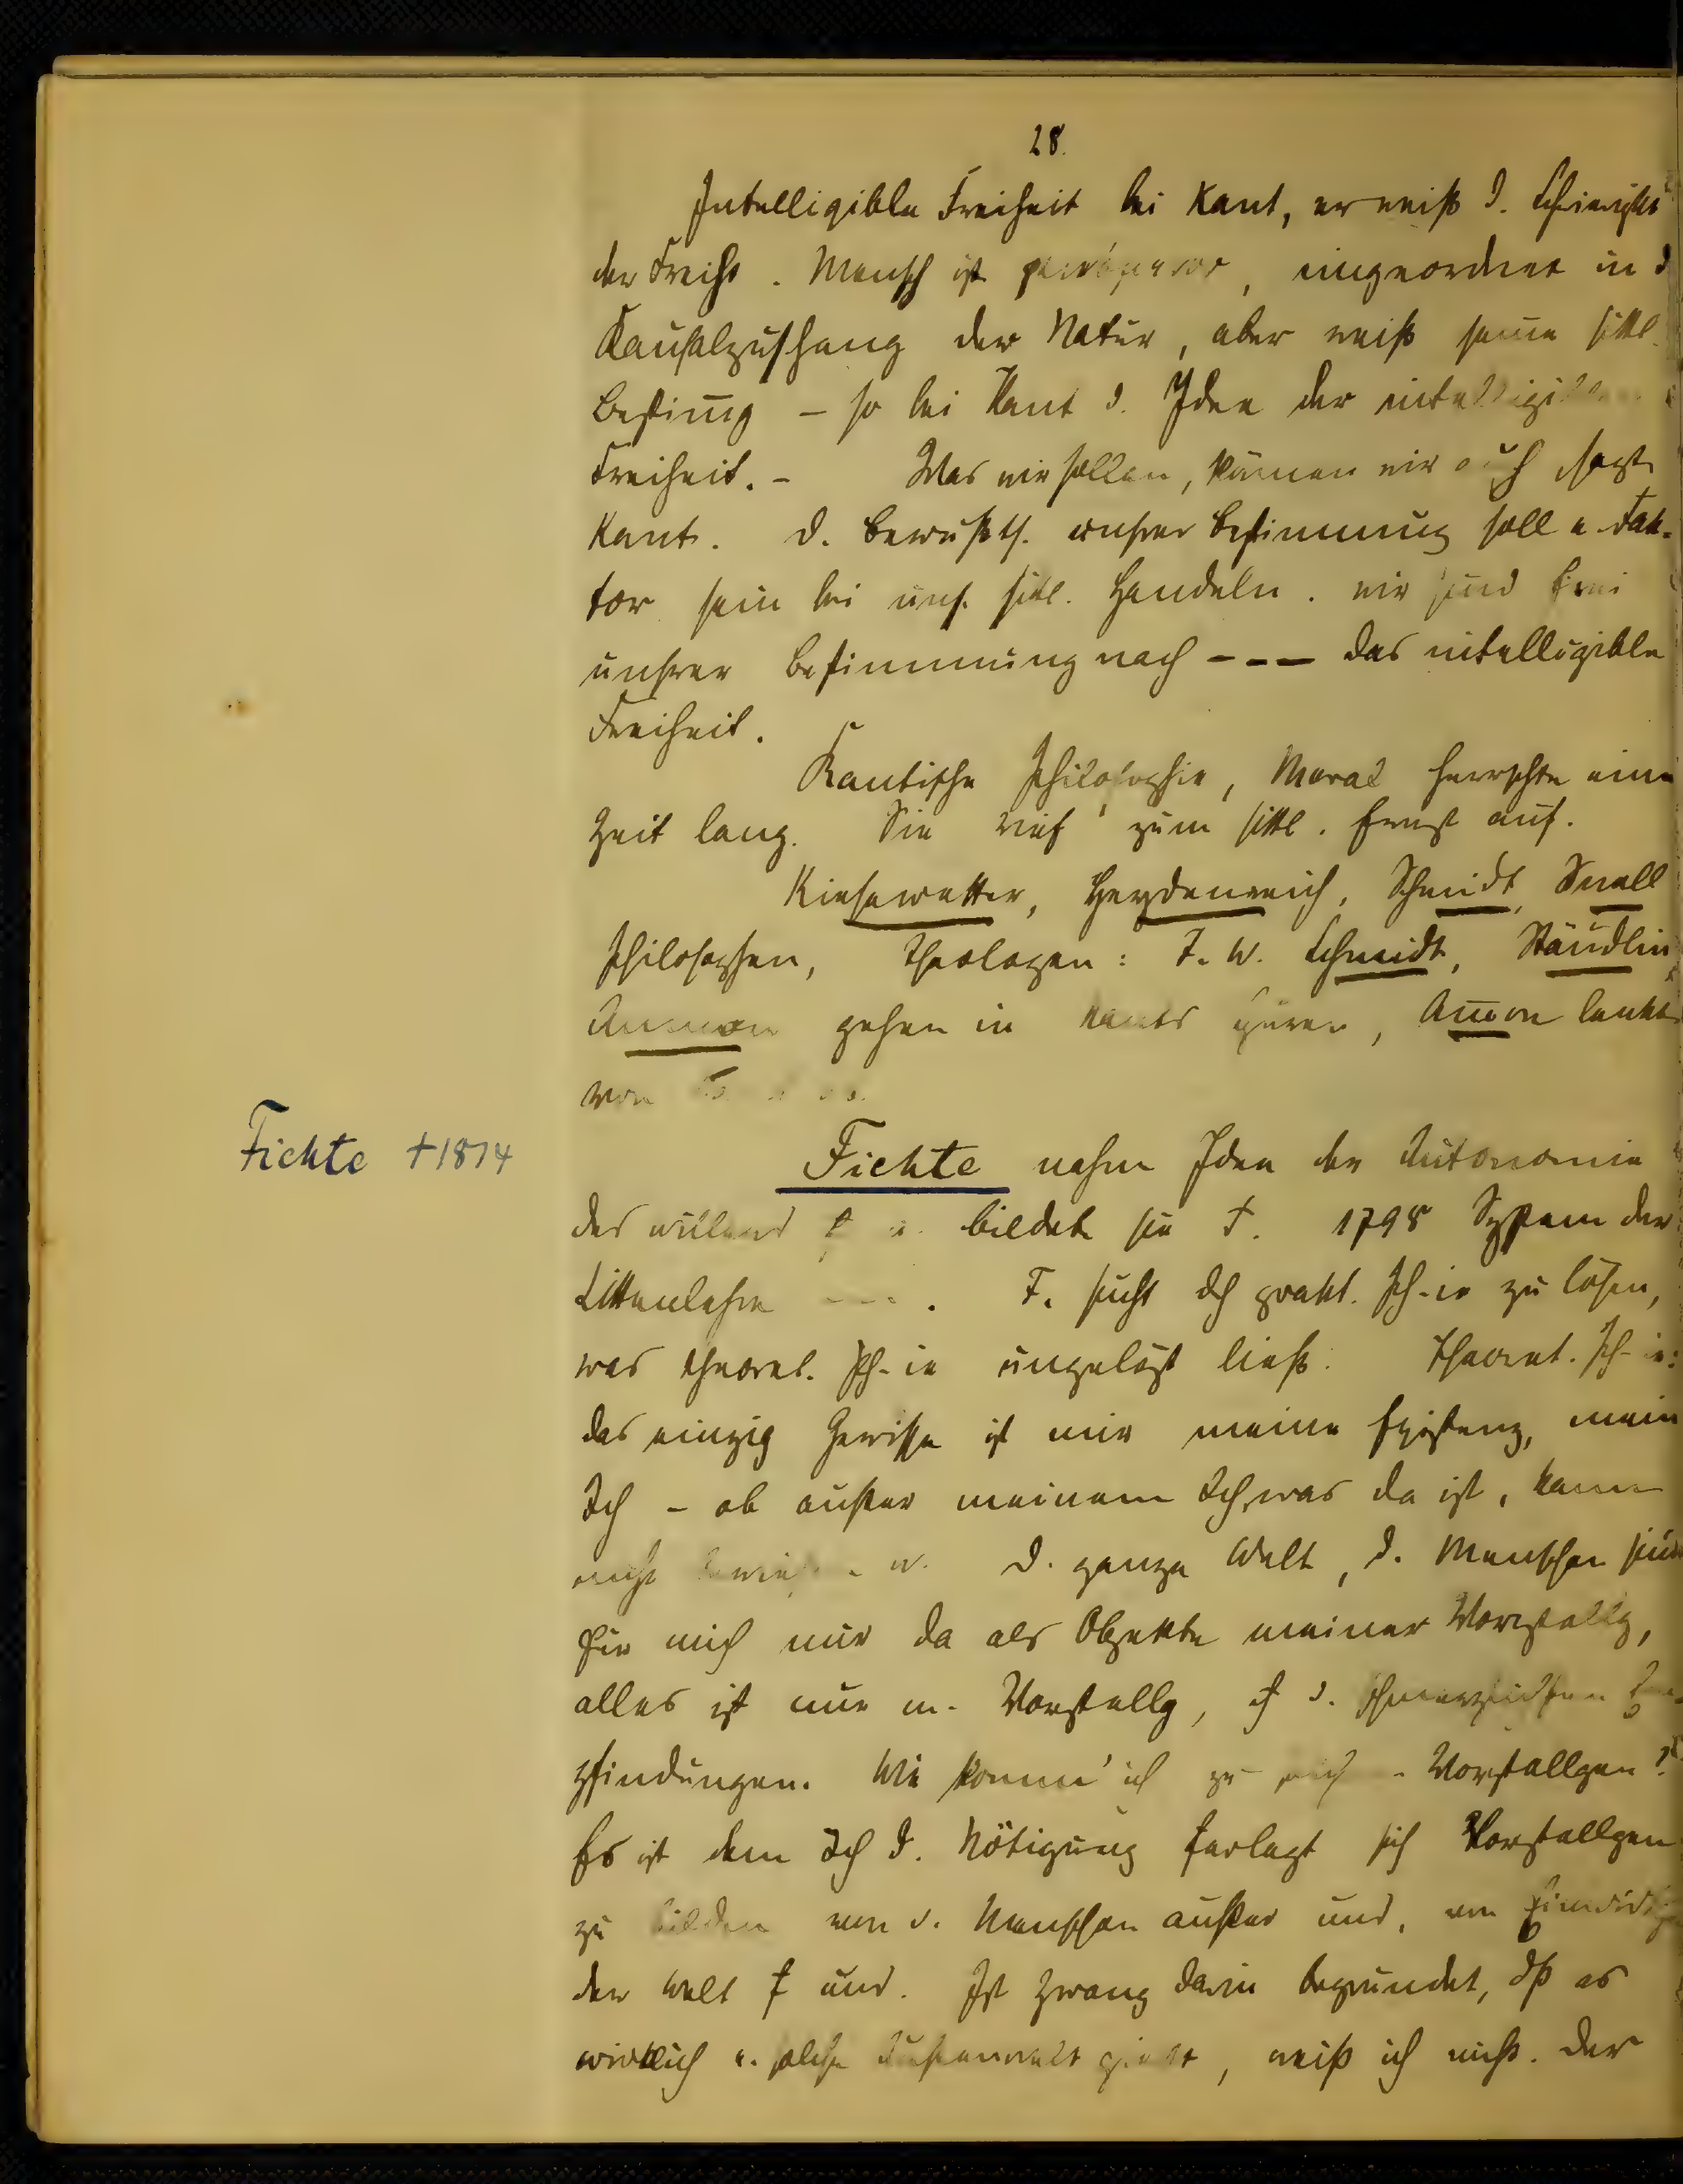 28.
Intelligible Freiheit bei Kant, er weiß d.
der Freiht. Mensch ist φαινόμενον, eingeordnet in d
Kausalzushang der Natur, aber weiß seine sittl.
Bestimg – so bei Kant d. Idee der intelligiblen
Freiheit. – Was wir sollen, können wir auch sagt
Kant. D. Bewußts. unsrer Bestimmung soll e. Fak-
tor sein bei uns. sittl. Handeln. wir sind frei
unsrer Bestimmung nach --- das intelligible
Freiheit.
Kantische Philosophie, Moral herrschte eine
Zeit lang. Sie rief zum sittl. Ernst auf.
Kiesewetter, Heydenreich, Schmidt, Snell
Philosophen, Theologen: F. W. Schmidt, Stäudlin,
Ammon gehen in Kants Spuren, Amon lenkte
von
Fichte †1814
Fichte nahm Idee der Autonomie
des Willens f u. bildete sie f. 1798 System der
Sittenlehre ---. F. sucht dch prakt. Ph-ie zu lösen,
was theoret. Ph-ie ungelöst ließ. Theoret. Ph-ie:
das einzig Gewisse ist mir meine Existenz, mein
Ich – ob außer meinem Ich was da ist, kann
nicht bewiesen w. D. ganze Welt, d. Menschen sind
für mich nur da als Objekte meiner Vorstellg,
alles ist nur m. Vorstellg, d. schmerzlichsten Em-
pfindungen. Wie komm' ich zu Vorstellgen?
Es ist dem Ich d. Nötigung ferlegt sich Vorstellgen
zu bilden von d. Menschen außer uns, von
der Welt f uns. Ist Zwang darin begründet, dß es
wirklich e. solche Außenwelt giebt, weiß ich nicht. Der